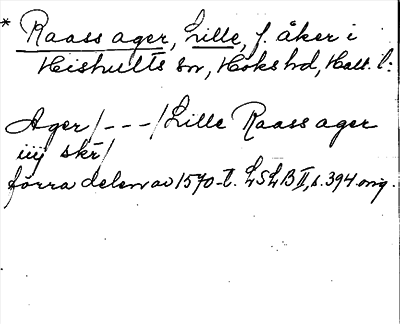 * Raass ager, Lille, f. åker i
Hishults sn, Höks hd, Hall. l:
Ager /---/ Lille Raass ager
iiij skr/
förra delen av 1570-t. LSLB II, s. 394. orig.